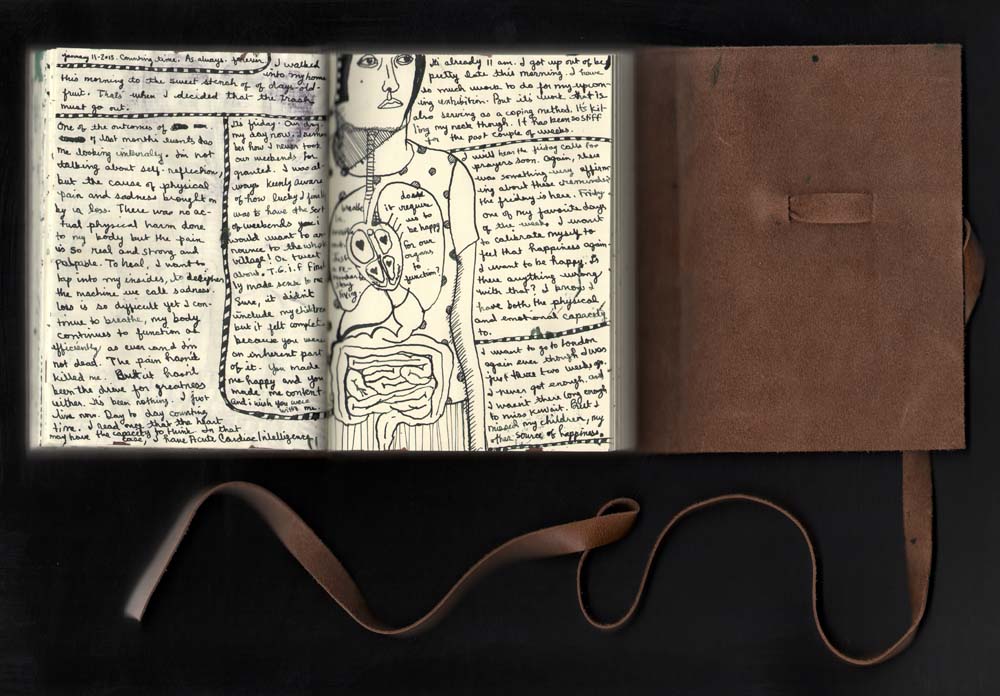 January 11-2013. Counting time. As always. forever. I walked
into my home
this morning to the sweet stench of of days-old-
fruit. Thats when I decided that the trash
must go out.
One of the outcomes of
of last months events has
me looking internally. im not
talking about self-reflection,
but the cause of physical
pain and sadness brought on
by a loss. There was no ac-
tual physical harm done
to my body but the pain
is so real and strong and
palpable. To heal, I want to
tap into my insides, to decipher
the machine we call sadness.
loss is so difficult yet I con-
tinue to breathe, my body
continues to function as
efficiently as ever and im
not dead. The pain hasnt
killed me. But it hasnt
been the drive for greatness
either. its been nothing. I just
live now. Day to day counting
time. I read once that the heart
may have the capacity to think. In that
case, I have Acute Cardiac Intelligence
Its friday. Our day
my day now.
how I never took
our weekends for
granted. I was al-
ways keenly aware
of how lucky I
was to have the sort
of weekends you
would want to an-
nounce to the whole
village! Or tweet
about. T.G.I.F Final-
ly made sense to me
Sure, it didn't
include my children
but it felt complete
because you were
an inherent part
of it. you made
me happy and you
made me content
and i wish you were
with me.
breathe
in
living
does
it require
us to
be happy
for our
organs
to
function?
Its already 11 am. I got up out of bed
pretty late this morning. I have
so much work to do for my upcom-
ing exhibition. But its work that is
also serving as a coping method. Its kil-
ling my neck though. It has been so stiff
for the past couple of weeks.
I will hear the friday calls for
prayers soon. again, there
was something very affirm-
ing about these reminders
the friday is here. Friday
one of my favorite days
of the week. I want
to calibrate myself to
feel that happiness again-
I want to be happy. Is
there anything wrong
with that? I know i
have both the physical
and emotional capacity
to.
I want to go to London
again even though I was
just there two weeks ago
I never got enough, and
I wasn't there long enough
to miss Kuwait. But I
missed my children, my
other source of happiness.